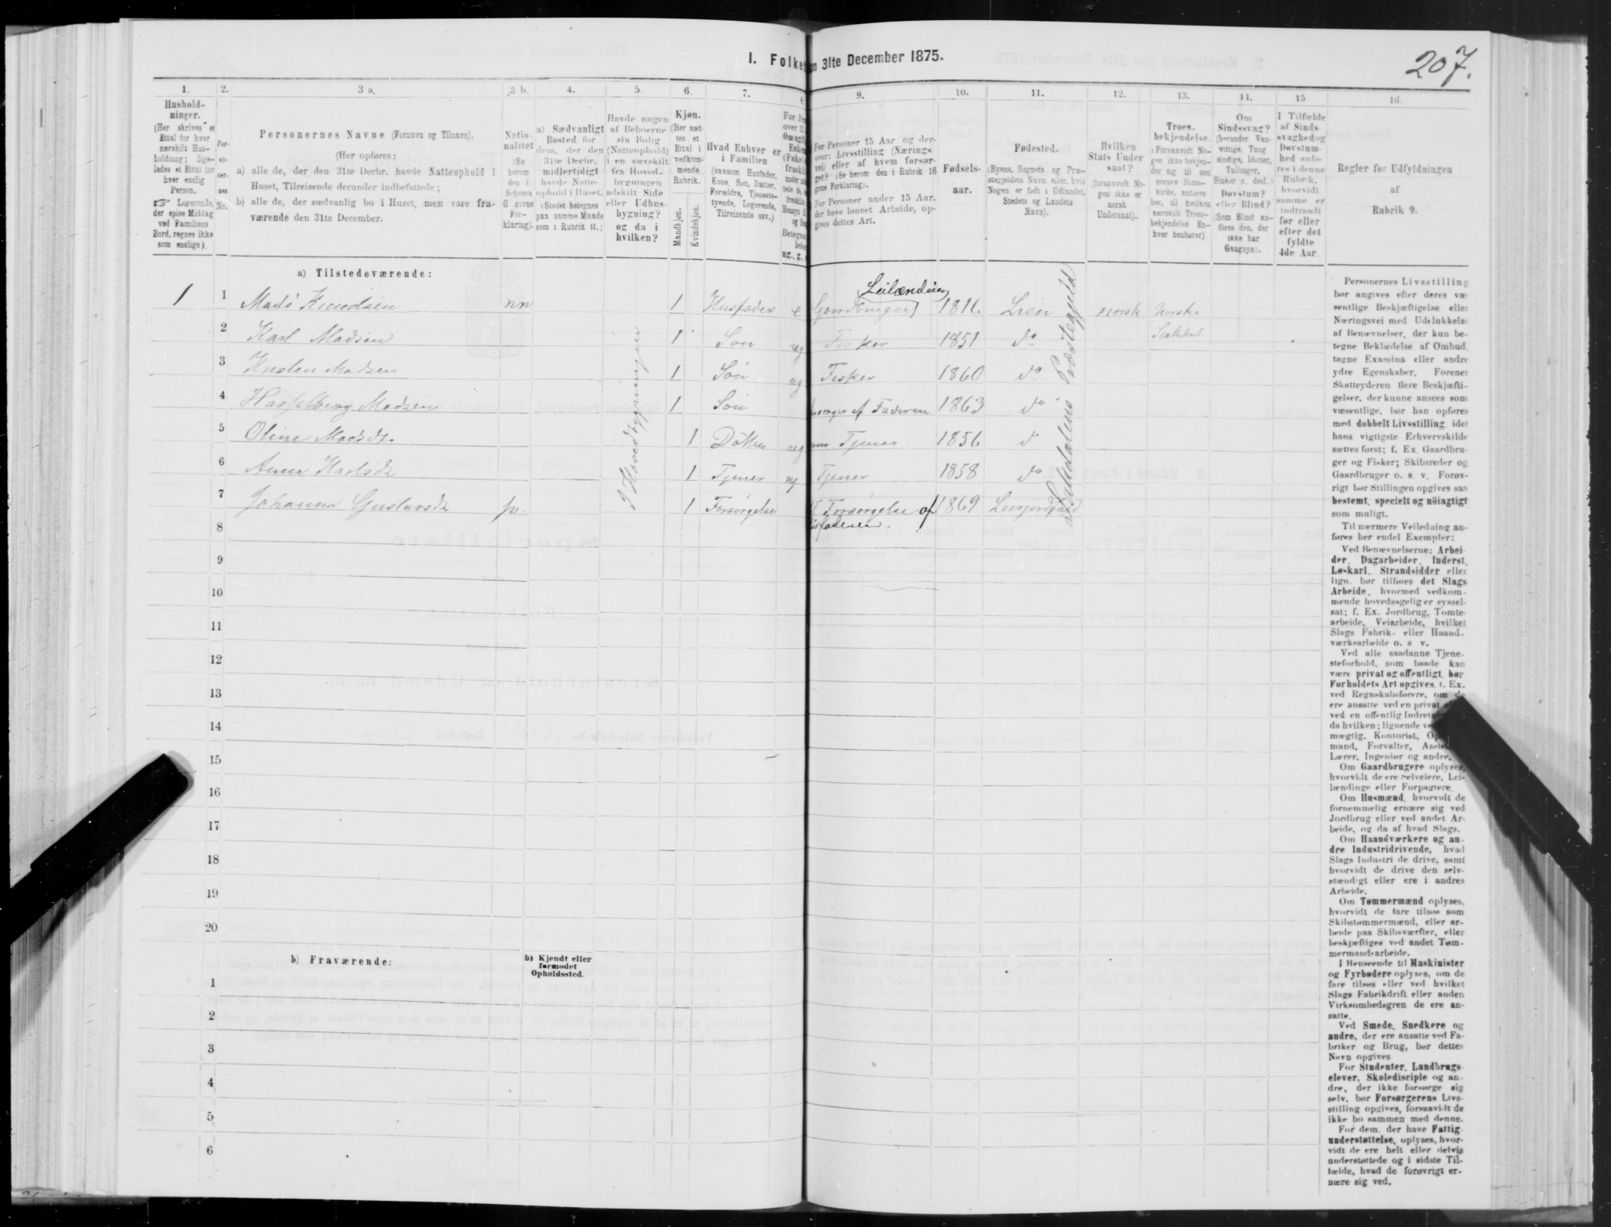 I. Folke n 31te December 1875.
207.
1. 2. 3 a. 3 b. 4. 5. 6. 7. 8 9. 10. 11. 12. 13. 14. 15 16.
Hushold-
ninger.
(Her skrives et
Ettal for hver
særskilt Hus-
holdning; lige-
ledes et Ettal for
hver enslig
Person.
Logerende,
der spise Middag
ved Familiens
Bord, regnes ikke
som enslige).
Per-
so-
ner-
nes
No.
Personernes Navne (Fornavn og Tilnavn).
(Her opføres:
a) alle de, der den 31te Decbr. havde Natteophold i
Huset, Tilreisende derunder indbefattede;
b) alle de, der sædvanlig bo i Huset, men vare fra-
værende den 31te December.
Natio-
nalitet
(Se
herom
den i
Schema
6 givne
For-
klaring).
a) Sædvanligt
Bosted for
dem, der den
31te Decbr.
midlertidigt
havde Natte-
ophold i Huset.
(Stedet betegnes
paa samme Maade
som i Rubrik 11.)
Havde nogen
af Beboerne
sin Bolig
(Natteophold)
i en særskilt
fra Hoved-
bygningen
adskilt Side
eller Udhus-
bygning?
og da i
hvilken?
Kjøn.
(Her sæt-
tes et
Ettal i
vedkom-
mende
Rubrik.
Mandkjøn.
Kvindekjøn.
Hvad Enhver er
i Familien
(saasom Husfader,
Kone, Søn, Datter,
Forældre, Tjeneste-
tyende, Logerende,
Tilreisende osv.)
For Personer 15 Aar og der-
over: Livsstilling (Nærings-
vei) eller af hvem forsør-
get? (Se herom den i Rubrik 16
givne Forklaring).
For Personer under 15 Aar,
der have lønnet Arbeide, op-
gives dettes Art.
Fødsels-
aar.
Fødested.
(Byens, Sognets og Præ-
stegjeldets Navn eller, hvis
Nogen er født i Udlandet,
Stedets og Landets
Navn).
Hvilken
Stats Under-
saat?
(forsaavidt No-
gen ikke er
norsk
Undersaat).
Troes-
bekjendelse.
(Forsaavidt No-
gen ikke bekjen-
der sig til den
norske Stats-
kirke, anføres
her, til hvilken
særskilt Troes-
bekjendelse En-
hver henhører)
Om
Sindssvag?
(herunder Van-
vittige, Tung
sindige, Idioter,
Tullinger,
Sinker o. desl.)
Døvstum?
eller Blind?
(Som Blind an-
føres den, der
ikke har
Gangsyn).
I Tilfælde
af Sinds-
svaghed og
Døvstum-
hed anfø-
res i denne
Rubrik,
hvorvidt
samme er
indtraadt
før eller
efter det
fyldte
4de Aar.
Regler for Udfyldningen
af
Rubrik 9.
a) Tilstedeværende:
Leilænding
1 1 Mads Knudsen nn 1 Husfader e Gaardbruger 1816 Lien norsk Norske
Statskirk
2 Karl Madsen 1 Søn ug Fisker 1851 do
3 Kristen Madsen 1 Søn ug Fisker 1860 do
4 Hasselberg Madsen 1 Søn forsørges af Faderen 1863 do
5 Oline Madsdt. 1 Datter ug som Tjener 1856 do
6 Anne Karlsdt 1 Tjener ug Tjener 1858 do
7 Johanna Gustavsdt 1 Forsørgelse Forsørgelse af 1869
I Hovedbygningen
Præstegjeld
8
9
10
11
12
13
14
15
16
17
18
19
20
b) Fraværende:
b) Kjendt eller
formodet
Opholdssted.
1
2
3
4
5
6
Personernes Livsstilling
bør angives efter deres væ-
sentlige Beskjæftigelse eller
Næringsvei med Udelukkelse
af Benævnelser, der kun be-
tegne Beklædelse af Ombud,
tagne Examina eller andre
ydre Egenskaber. Forener
Skatteyderen flere Beskjæfti-
gelser, der kunne ansees som
væsentlige, bør han opføres
med dobbelt Livsstilling, idet
hans vigtigste Erhvervskilde
sættes først; f. Ex. Gaardbru-
ger og Fisker; Skibsreder og
Gaardbruger o. s. v. Forøv-
rigt bør Stillingen opgives saa
bestemt, specielt og nøiagtigt
som muligt.
Til nærmere Veiledning an-
føres her endel Exempler:
Ved Benævnelserne: Arbei-
der, Dagarbeider, Inderst,
Løskarl, Strandsidder eller
lign. bør tilføies det Slags
Arbeide, hvormed vedkom-
mende hovedsagelig er syssel-
sat; f. Ex. Jordbrug, Tomte-
arbeide, Veiarbeide, hvilket
Slags Fabrik- eller Haand-
værksarbeide o. s. v.
Ved alle saadanne Tjene-
steforhold, som baade kan
være privat og offentligt, bør
Forholdets Art opgives, f. Ex.
ved Regnskabsførere, om de
ere ansatte ved en privat
ved en offentlig Indret
da hvilken; lignende ve
mægtig, Kontorist, O
mand, Forvalter, Assis
Lærer, Ingeniør og andre.
Om Gaardbrugere oplyses,
hvorvidt de ere Selveiere, Lei-
lændinge eller Forpagtere.
Om Husmænd, hvorvidt de
fornemmelig ernære sig ved
Jordbrug eller ved andet Ar-
beide, og da af hvad Slags.
Om Haandværkere og an-
dre Industridrivende, hvad
Slags Industri de drive, samt
hvorvidt de drive den selv-
stændigt eller ere i andres
Arbeide.
Om Tømmermænd oplyses,
hvorvidt de fare tilsøs som
Skibstømmermænd, eller ar-
beide paa Skibsværfter, eller
beskjæftiges ved andet Tøm-
mermandsarbeide.
I Henseende til Maskinister
og Fyrbødere oplyses, om de
fare tilsøs eller ved hvilket
Slags Fabrikdrift eller anden
Virksomhedsgren de ere an-
satte.
Ved Smede, Snedkere og
andre, der ere ansatte ved Fa-
briker og Brug, bør dettes
Navn opgives
For Studenter, Landbrugs-
elever, Skoledisciple og an-
dre, der ikke forsørge sig
selv, bør Forsørgerens Livs-
stilling opgives, forsaavidt de
ikke bo sammen med denne.
For dem, der have Fattig
understøttelse, oplyses, hvor-
vidt de ere helt eller delvis
understøttede og i sidste Til-
fælde, hvad de forøvrigt er-
nære sig ved.